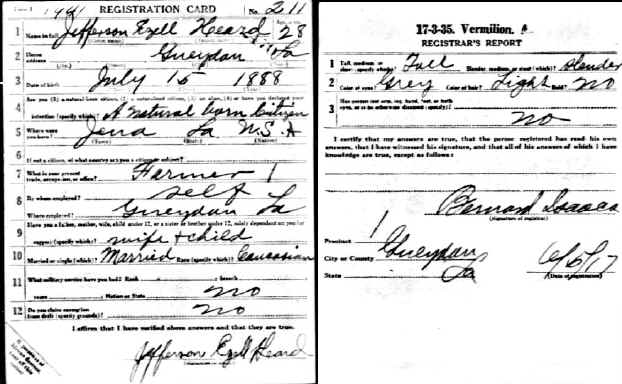 REGISTRATION CARD No. 211
1 Name in full Jefferson Ezell Heard 28
2 Home address Gueydan La
3 Date of birth July 15 1888
4 Are you (1) a natural-born citizen, (2) a naturalized citizen, (3) an alien, (4) or have you declared your
intention (specify which)? A natural born Citizen
5 Where were you born? Jena La U.S.A
6 If not a citizen, of what country are you a citizen or subject?
7 What is your present trade, occupation, or office? Farmer 1
8 By whom employed? Self
Where employed? Gueydan La
9 Have you a father, mother, wife, child under 12, or a sister or brother under 12, solely dependent on you for
support (specify which)? wife + child
10 Married or single (which)? Married Race (specify which)? Caucasian
11 What military service have you had? Rank branch
years Nation or State no
12 Do you claim exemption from draft (specify grounds)? no
I affirm that I have verified above answers and that they are true.
Jefferson Ezell Heard
17-3-35. Vermilion. A
REGISTRAR'S REPORT
1 Tall, medium, or short (specify which)? Tall Slender, medium, or stout (which)? slender
2 Color of eyes? Grey Color of hair? Light Bald? NO
3 Has person lost arm, leg, hand, foot, or both
eyes, or is he otherwise disabled (specify)?
no
I certify that my answers are true, that the person registered has read his own
answers, that I have witnessed his signature, and that all of his answers of which I
have knowledge are true, except as follows:
Bernard Isaacs
(Signature of registrar)
Precinct 1
City or County Gueydan
State La 6/5/17
(Date of registration)